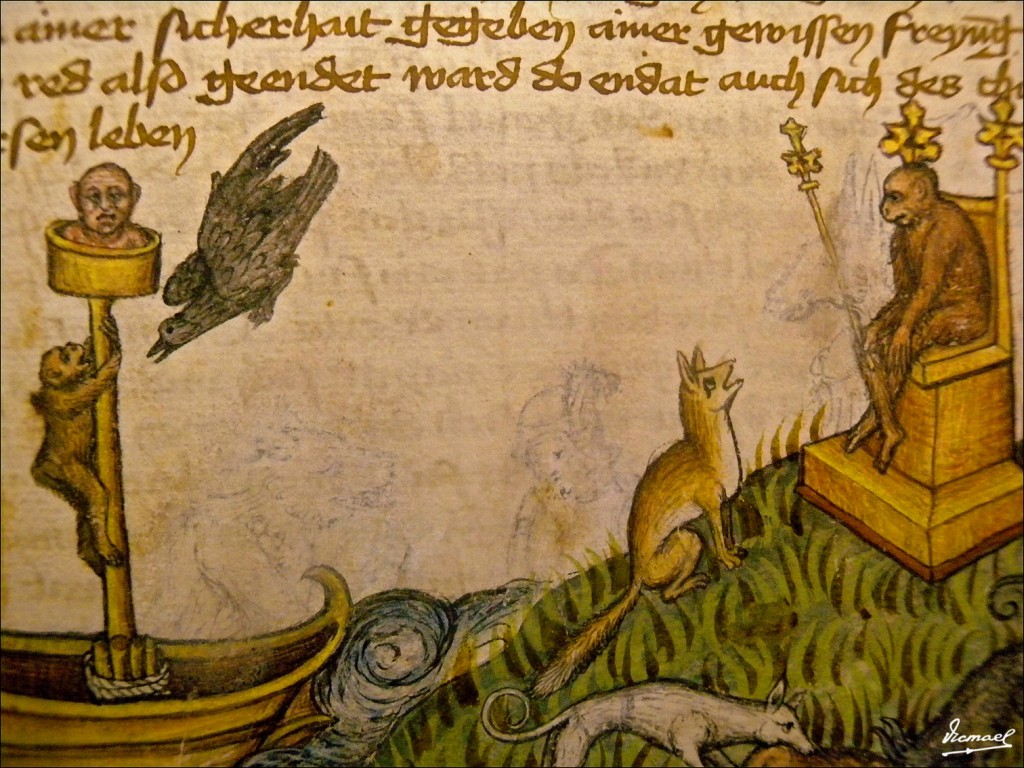 ainer sicherhait gegeben ainer gewissen freyung
red also geendet ward do endat auch sich des
sen leben
vicmael